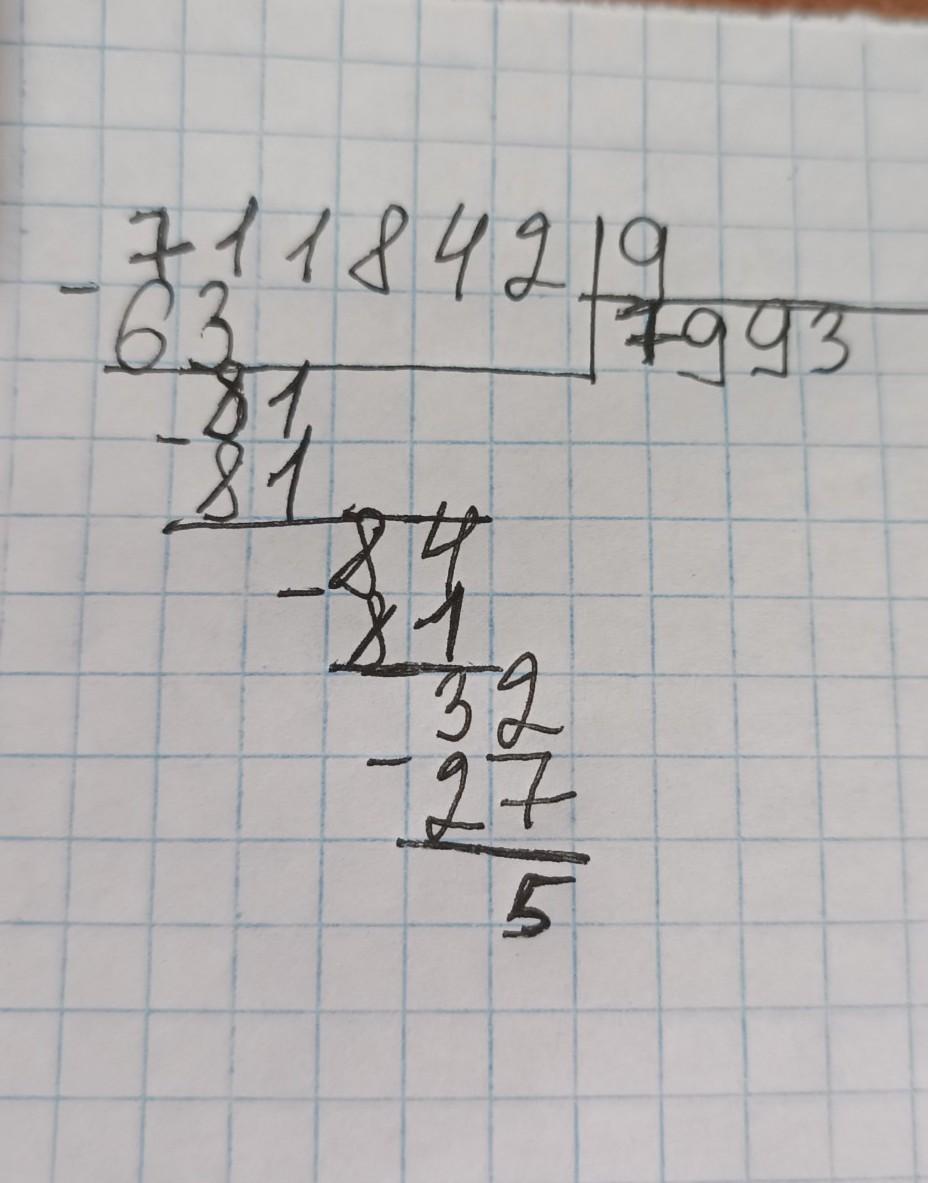 711842 9
- 63 7993
81
- 81
84
- 81
32
- 27
5